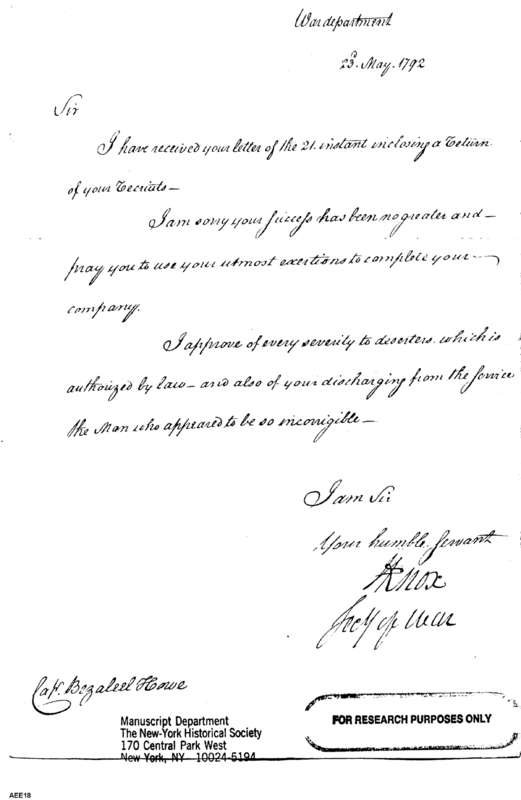 War department
23d. May. 1792
Sir
I have received your letter of the 21. instant inclosing a return
of your recruits—
I am sorry your success has been no greater and—
pray you to use your utmost exertions to complete your—
company.
I approve of every severity to deserters. which is
authorized by law— and also of your discharging from the service
the Man who appeared to be so incorrigible—
I am Sir
Your humble. servant
HKnox
Secy of War
Capt. Bezaleel Howe
Manuscript Department
The New-York Historical Society
170 Central Park West
New York, NY 10024-5194
FOR RESEARCH PURPOSES ONLY
AEE18